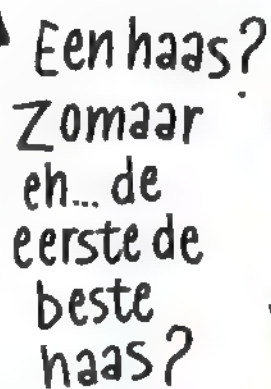 Een haas?
Zomaar
eh... de
eerste de
beste
haas?